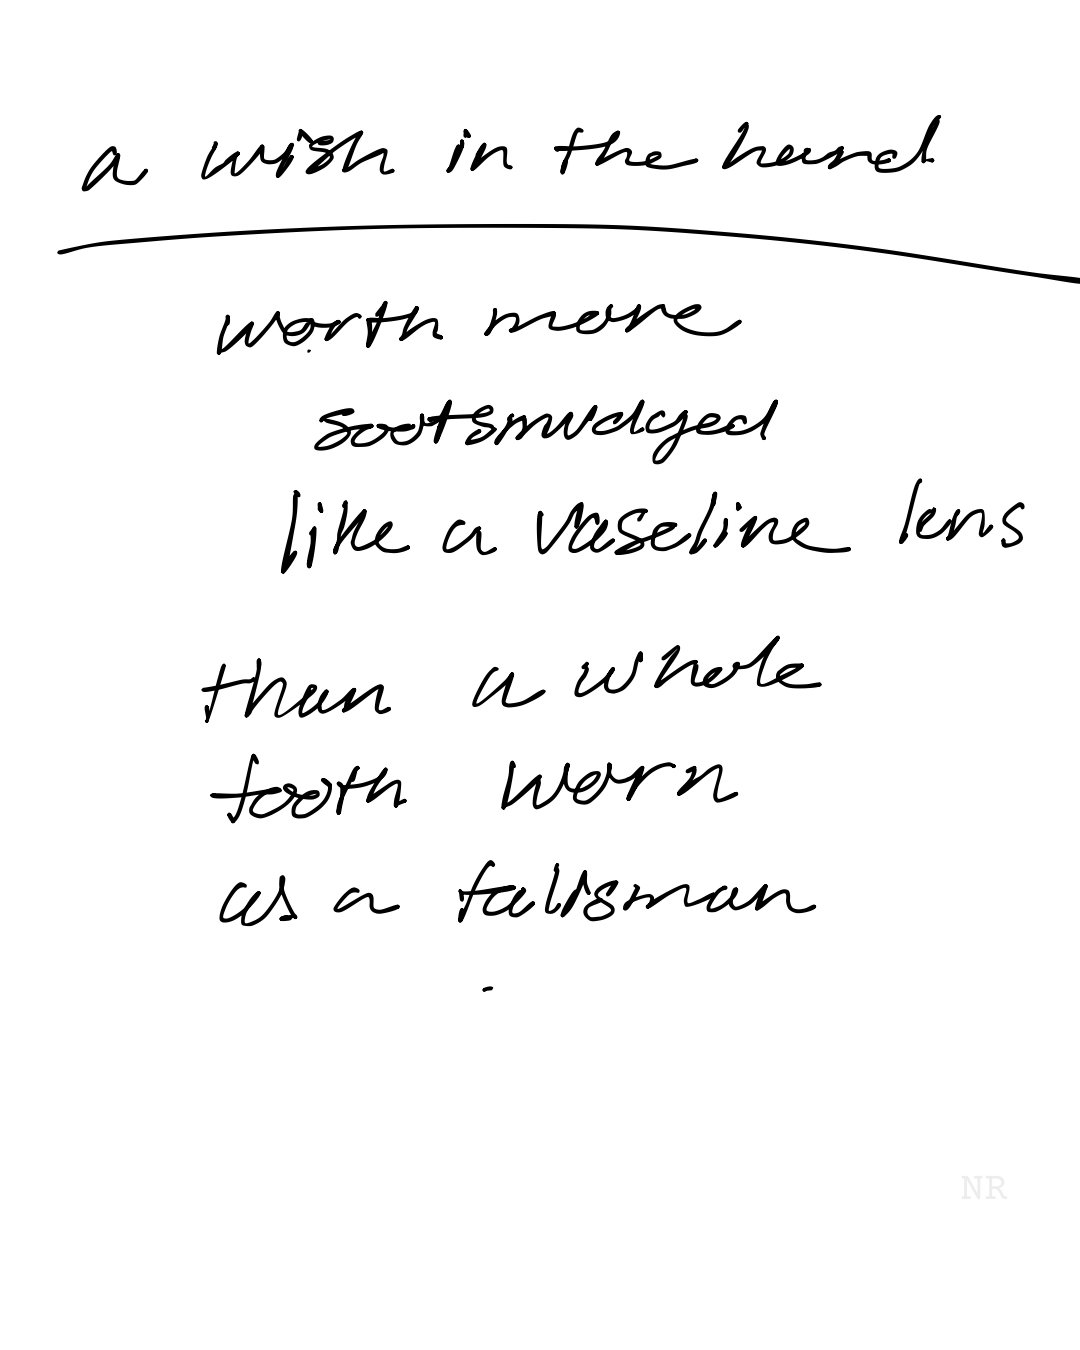 a wish in the hand
worth more
sootsmudged
like a vaseline lens
than a whole
tooth worn
as a talisman
NR